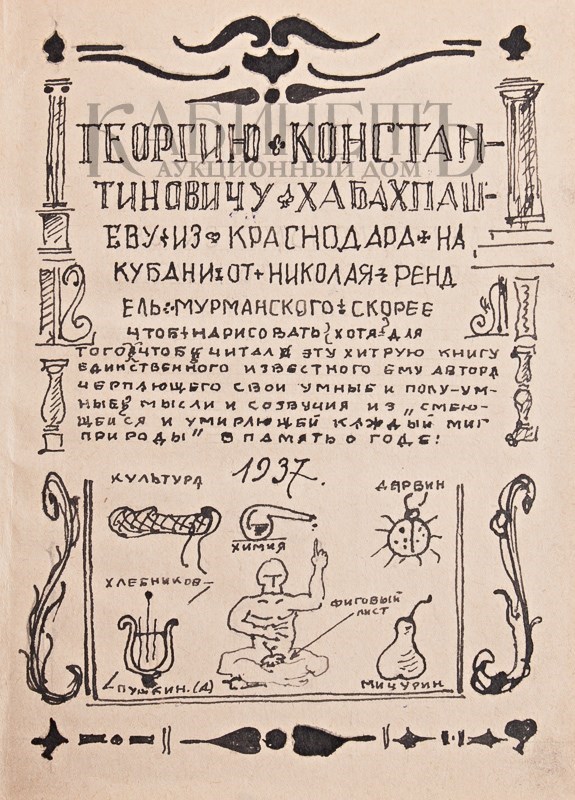 КАБИНЕТЪ
АУКЦИОННЫЙ ДОМ
ГЕОРГИЮ КОНСТАН-
ТИНОВИЧУ ХАБАХПАШ-
ЕВУ ИЗ КРАСНОДАРА НА
КУБАНИ ОТ НИКОЛАЯ РЕНД
ЕЛЬ МУРМАНСКОГО СКОРЕЕ
ЧТОБ НАРИСОВАТЬ ХОТЯ ДЛЯ
ТОГО ЧТОБ ЧИТАЛ ЭТУ ХИТРУЮ КНИГУ
ЕДИНСТВЕННОГО ИЗВЕСТНОГО ЕМУ АВТОРА
ЧЕРПАЮЩЕГО СВОИ УМНЫЕ И ПОЛУ-УМ-
НЫЕ МЫСЛИ И СОЗВУЧИЯ ИЗ „СМЕЮ-
ЩЕЙСЯ И УМИРАЮЩЕЙ КАЖДЫЙ МИГ
ПРИРОДЫ" В ПАМЯТЬ О ГОДЕ:
1937.
КУЛЬТУРА
ДАРВИН
ХИМИЯ
ХЛЕБНИКОВ
ФИГОВЫЙ
ЛИСТ
ПУШКИН. (А)
МИЧУРИН